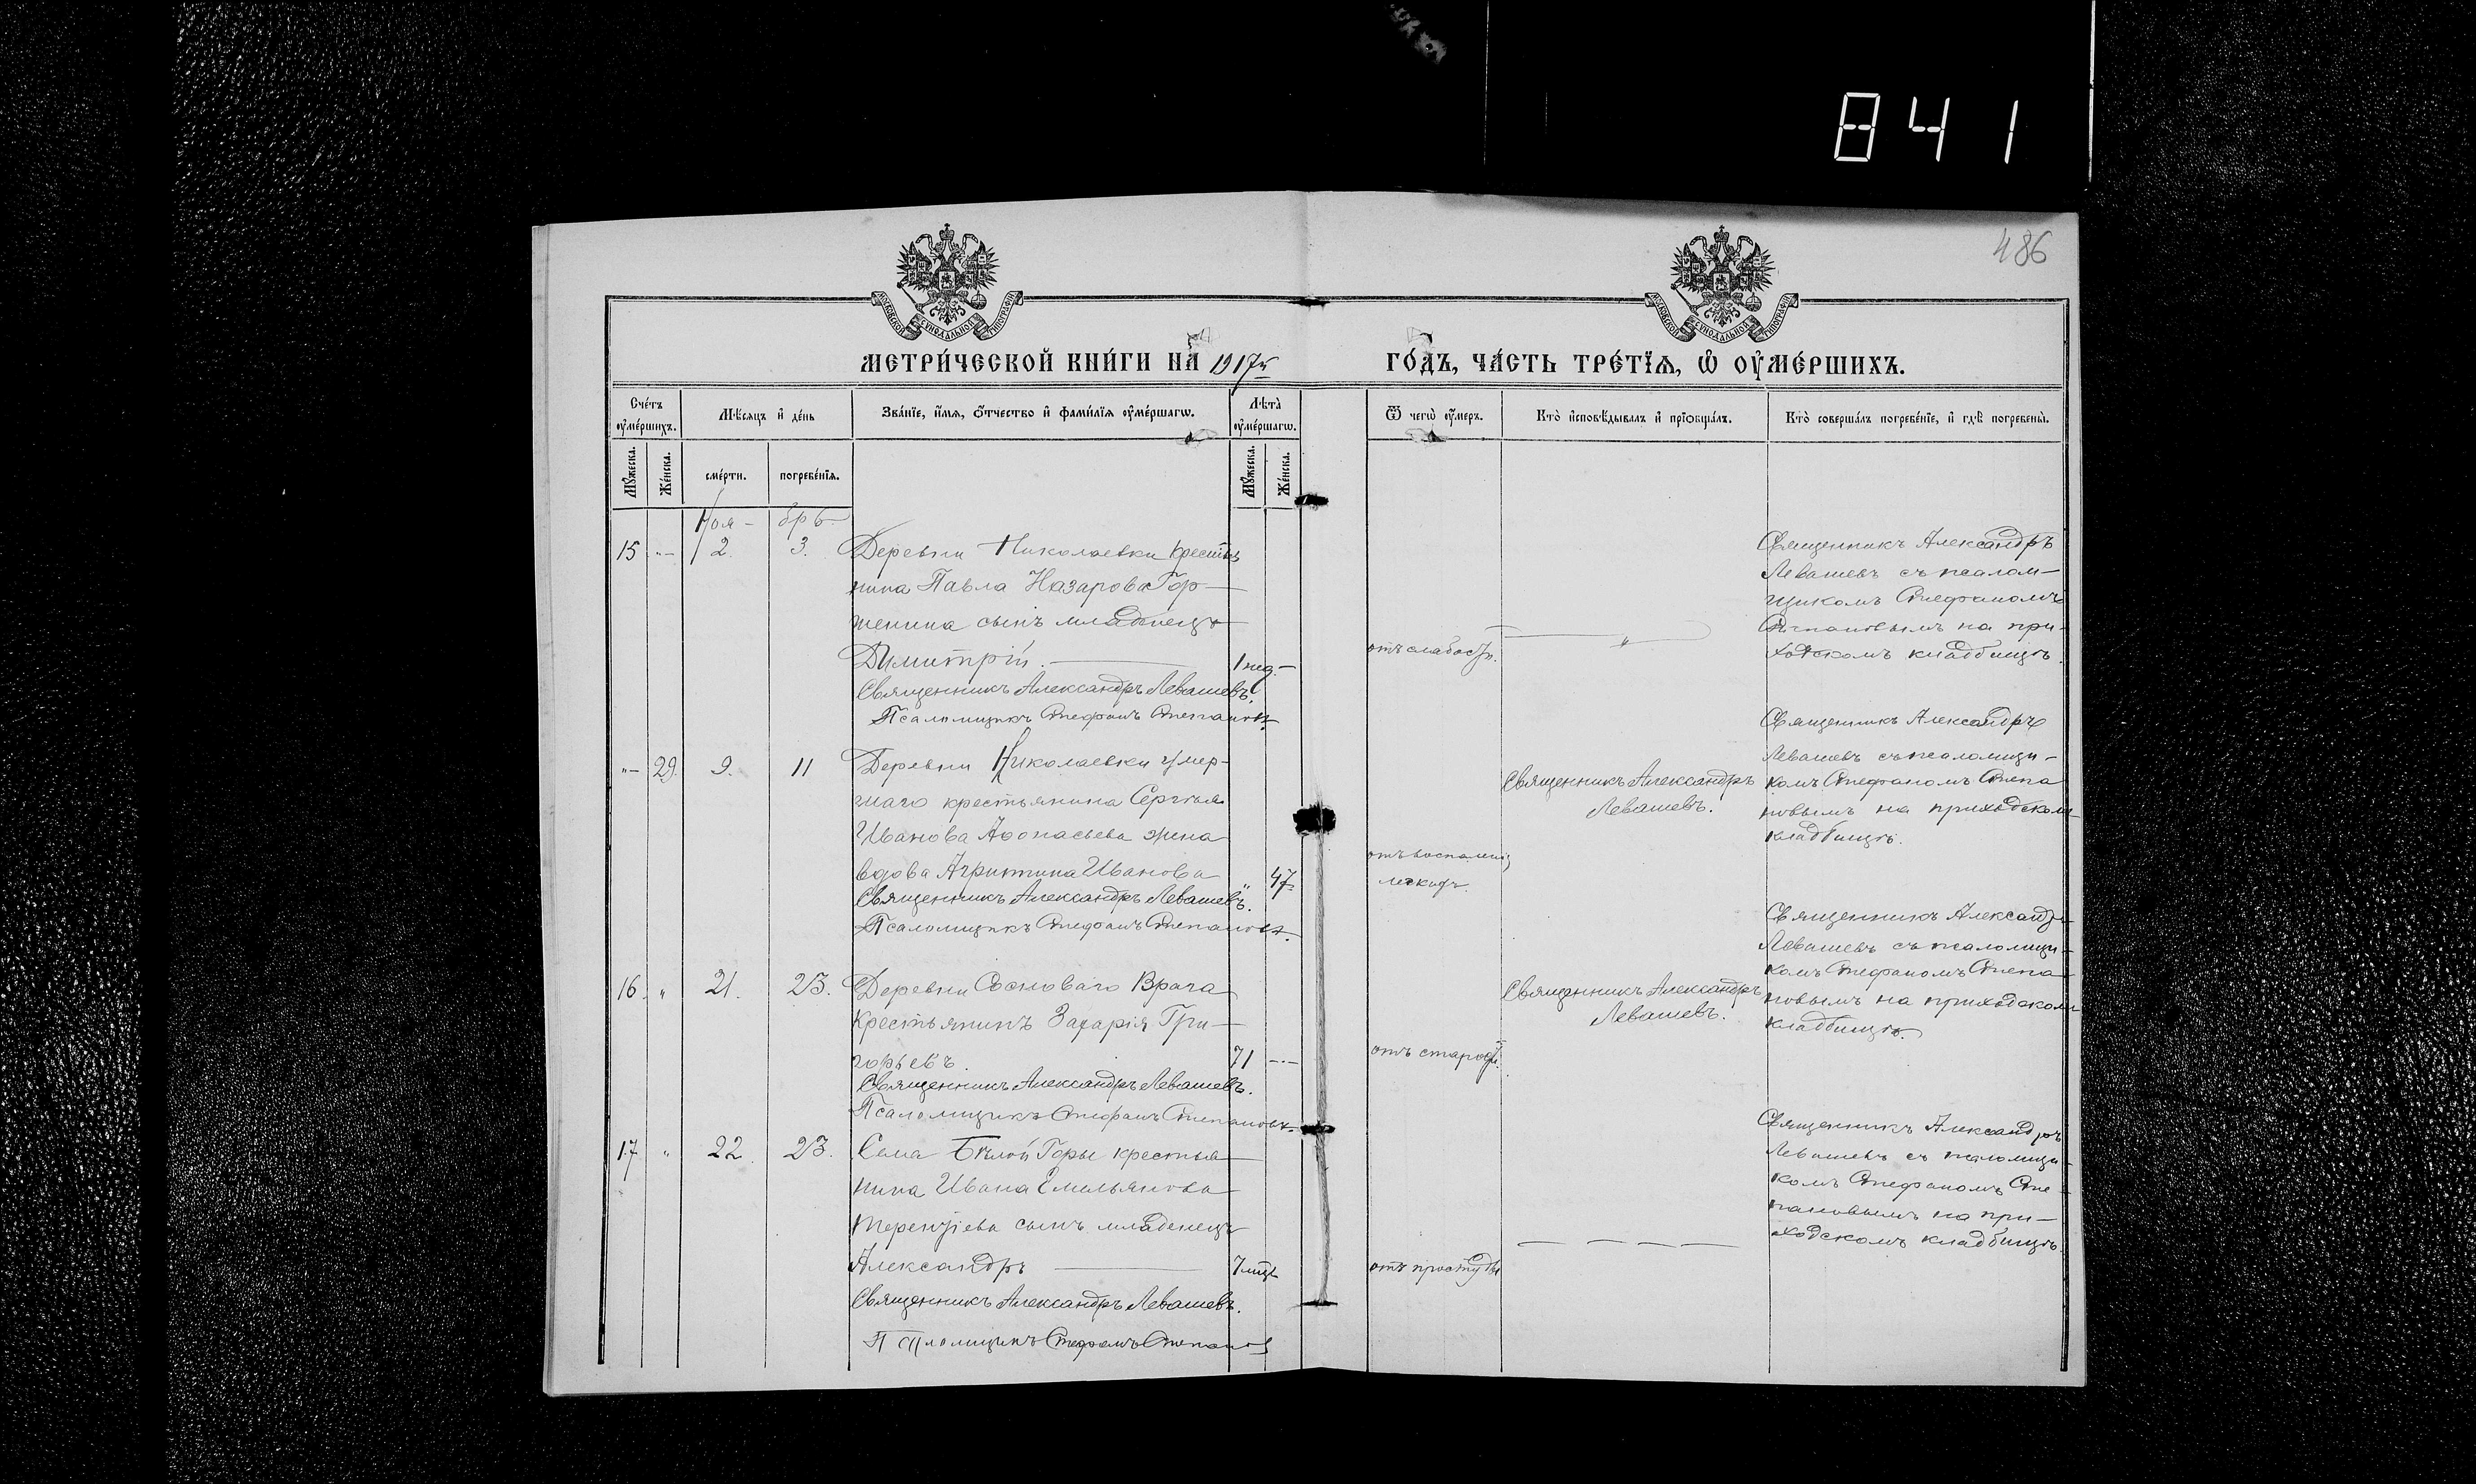 841
486
МОСКОВСКОЙ СѴНОДАЛЬНОЙ ТИПОГРАФІИ
МОСКОВСКОЙ СѴНОДАЛЬНОЙ ТИПОГРАФІИ
МЕТРИ́ЧЕСКОЙ КНИ́ГИ НА̀ 1917й ГО́ДЪ, ЧА́СТЬ ТРЕ́ТЇѦ, Ѡ҆ ОУ҆МЕ́РШИХЪ.
Сче́тъ оу҆ме́ршихъ.
Мѣ́сяцъ и҆ де́нь
Зва́нїе, и҆́мѧ, ѻ҆́тчество и҆ фами́лїѧ оу҆ме́ршагѡ.
Лѣта̀ оу҆ме́ршагѡ.
Ѿ чегѡ̀ оу҆́меръ.
Кто̀ и҆сповѣ́дывалъ и҆ прїѻбща́лъ.
Кто̀ соверша́лъ погребе́нїе, и҆ гдѣ̀ погребены̀.
Мꙋ́жеска.
Же́нска.
сме́рти.
погребе́нїѧ.
Мꙋ́жеска.
Же́нска.
Ноя- брь
15 "- 2. 3. Деревни Николаевки крестья
нина Павла Назарова Гор-
шенина сынъ младенецъ
Димитрій. 1 нед.
отъ слабости.
"
Священникъ Александръ Левашевъ.
Псаломщикъ Стефанъ Степановъ.
Священникъ Александръ
Левашевъ съ псалом-
щикомъ Стефаномъ
Степановымъ на при-
ходскомъ кладбищѣ.
"- 29. 9. 11 Деревни Николаевки умер-
шаго крестьянина Сергѣя
Иванова Аѳонасьева жена
вдова Агриппина Иванова " 47.
Священникъ Александръ Левашевъ.
Псаломщикъ Стефанъ Степановъ.
отъ воспален.
легкихъ.
Священникъ Александръ
Левашевъ.
Священникъ Александръ
Левашевъ съ псаломщи-
комъ Стефаномъ Степа
новымъ на приходском
кладбищѣ.
16. " 21. 23. Деревни Сосноваго Врага
крестьянинъ Захарія Гри-
горьевъ. 71 -"-
Священникъ Александръ Левашевъ.
Псаломщикъ Стефанъ Степановъ.
отъ старости.
Священникъ Александръ
Левашевъ.
Священникъ Александръ
Левашевъ съ псаломщи-
комъ Стефаномъ Степа-
новымъ на приходском
кладбищѣ.
17. " 22. 23. Села Бѣлой Горы крестья
нина Ивана Емельянова
Терентіева сынъ младенецъ
Александръ 7 мцъ
Священникъ Александръ Левашевъ.
Псаломщикъ Стефанъ Степанов
отъ простуды
Священникъ Александръ
Левашевъ съ псаломщи-
комъ Стефаномъ Сте-
пановымъ на при-
ходскомъ кладбищѣ.